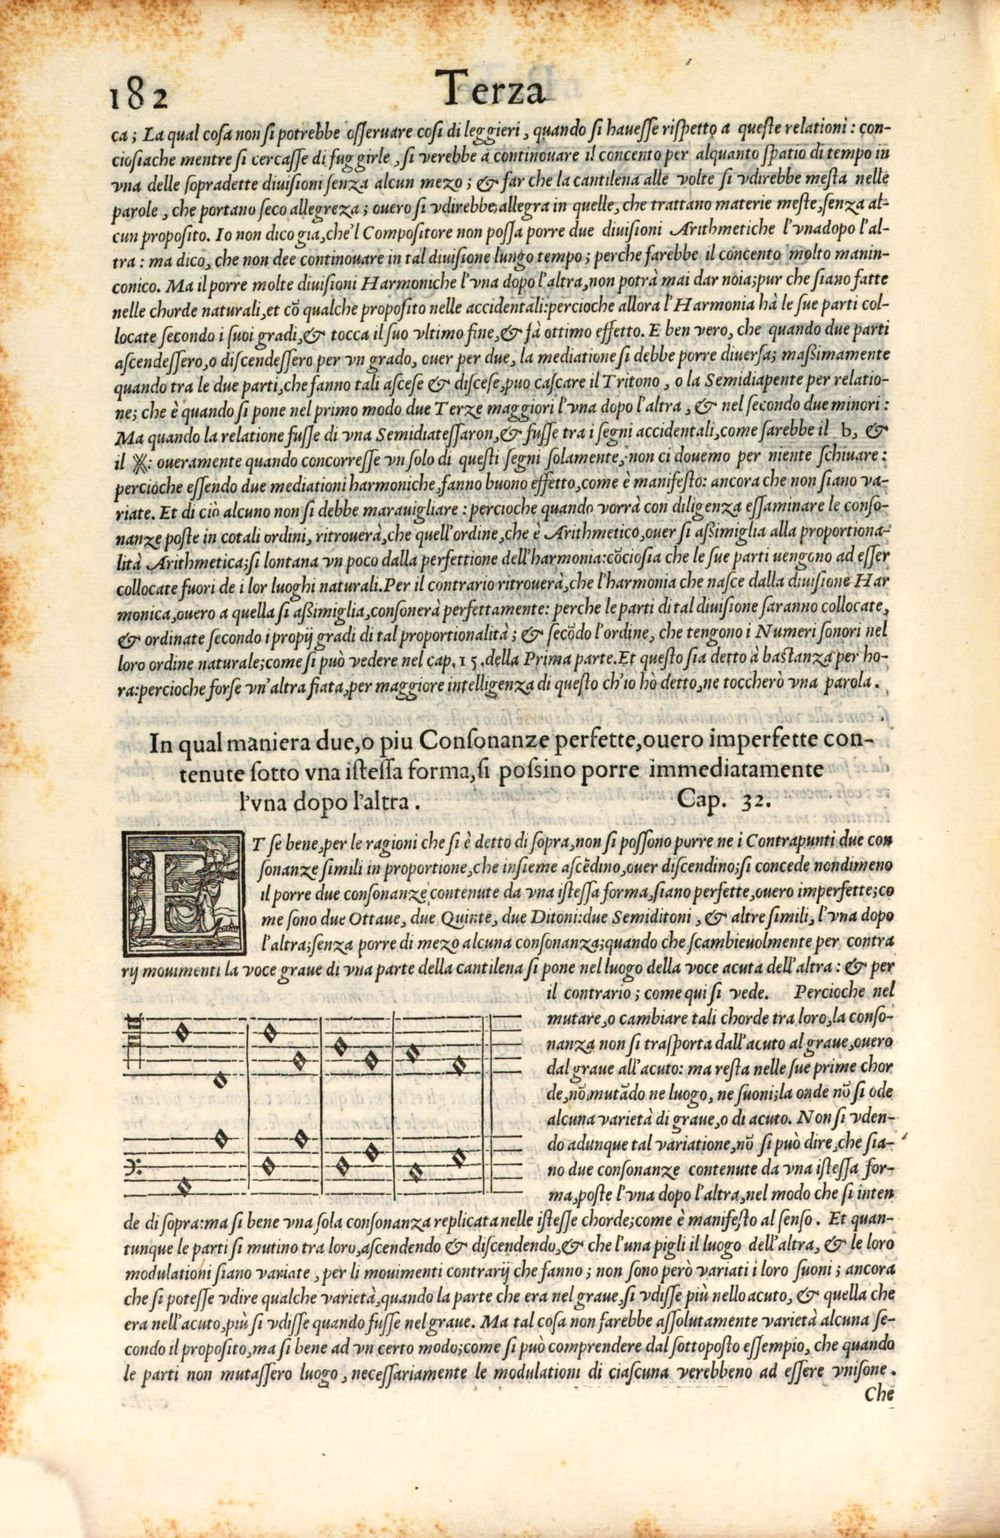 182 Terza
ca; La qual cosa non si potrebbe osseruare cosi di leggieri, quando si hauesse rispetto a queste relationi: con-
ciosiache mentre si cercasse di fuggirle, si verebbe à continouare il concento per alquanto spatio di tempo in
vna delle sopradette diuisioni senza alcun mezo; & far che la cantilena alle volte si vdirebbe mesta nelle
parole, che portano seco allegreza; ouero si vdirebbe allegra in quelle, che trattano materie meste, senza al-
cun proposito. Io non dico già, che'l Compositore non possa porre due diuisioni Arithmetiche l'vna dopo l'al-
tra: ma dico, che non dee continouare in tal diuisione lungo tempo; perche farebbe il concento molto manin-
conico. Ma il porre molte diuisioni Harmoniche l'vna dopo l'altra, non potrà mai dar noia; pur che siano fatte
nelle chorde naturali, et cō qualche proposito nelle accidentali: percioche allora l'Harmonia hà le sue parti col-
locate secondo i suoi gradi, & tocca il suo vltimo fine, & fà ottimo effetto. E ben vero, che quando due parti
ascendessero, o discendessero per vn grado, ouer per due, la mediatione si debbe porre diuersa; maßimamente
quando tra le due parti, che fanno tali ascese & discese, puo cascare il Tritono, o la Semidiapente per relatio-
ne; che è quando si pone nel primo modo due Terze maggiori l'vna dopo l'altra, & nel secondo due minori:
Ma quando la relatione fusse di vna Semidiatessaron, & fusse tra i segni accidentali, come sarebbe il ♭, &
il X: oueramente quando concorresse vn solo di questi segni solamente, non ci douemo per niente schiuare:
percioche essendo due mediationi harmoniche, fanno buono effetto, come è manifesto: ancora che non siano va-
riate. Et di ciò alcuno non si debbe marauigliare: percioche quando vorrà con diligenza essaminare le conso-
nanze poste in cotali ordini, ritrouerà, che quell'ordine, che è Arithmetico, ouer si aßimiglia alla proportiona-
lità Arithmetica; si lontana vn poco dalla perfettione dell'harmonia: cōciosia che le sue parti uengono ad esser
collocate fuori de i lor luoghi naturali. Per il contrario ritrouerà, che l'harmonia che nasce dalla diuisione Har
monica, ouero a quella si aßimiglia, consonerà perfettamente: perche le parti di tal diuisione saranno collocate,
& ordinate secondo i propij gradi di tal proportionalità; & secōdo l'ordine, che tengono i Numeri sonori nel
loro ordine naturale; come si può vedere nel cap. 15. della Prima parte. Et questo sia detto à bastanza per ho-
ra: percioche forse vn'altra fiata, per maggiore intelligenza di questo ch'io hò detto, ne toccherò vna parola.
In qual maniera due, o piu Consonanze perfette, ouero imperfette con-
tenute sotto vna istessa forma, si possino porre immediatamente
l'vna dopo l'altra. Cap. 32.
ET se bene, per le ragioni che si è detto di sopra, non si possono porre ne i Contrapunti due con
sonanze simili in proportione, che insieme ascēdino, ouer discendino; si concede nondimeno
il porre due consonanze contenute da vna istessa forma, siano perfette, ouero imperfette; co
me sono due Ottaue, due Quinte, due Ditoni: due Semiditoni, & altre simili, l'vna dopo
l'altra; senza porre di mezo alcuna consonanza; quando che scambieuolmente per contra
rij mouimenti la voce graue di vna parte della cantilena si pone nel luogo della voce acuta dell'altra: & per
il contrario; come qui si vede. Percioche nel
mutare, o cambiare tali chorde tra loro, la conso-
nanza non si trasporta dall'acuto al graue, ouero
dal graue all'acuto: ma resta nelle sue prime chor
de, nō mutādo ne luogo, ne suoni; la onde nō si ode
alcuna varietà di graue, o di acuto. Non si vden-
do adunque tal variatione, nō si può dire, che sia-
no due consonanze contenute da vna istessa for-
ma, poste l'vna dopo l'altra, nel modo che si inten
de di sopra: ma si bene vna sola consonanza replicata nelle istesse chorde; come è manifesto al senso. Et quan-
tunque le parti si mutino tra loro, ascendendo & discendendo, & che l'una pigli il luogo dell'altra, & le loro
modulationi siano variate, per li mouimenti contrarij che fanno; non sono però variati i loro suoni; ancora
che si potesse vdire qualche varietà, quando la parte che era nel graue, si vdisse più nello acuto, & quella che
era nell'acuto, più si vdisse quando fusse nel graue. Ma tal cosa non farebbe assolutamente varietà alcuna se-
condo il proposito, ma si bene ad vn certo modo; come si può comprendere dal sottoposto essempio, che quando
le parti non mutassero luogo, necessariamente le modulationi di ciascuna verebbeno ad essere vnisone.
Che